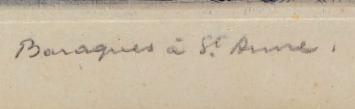 Baraques à St Anne.